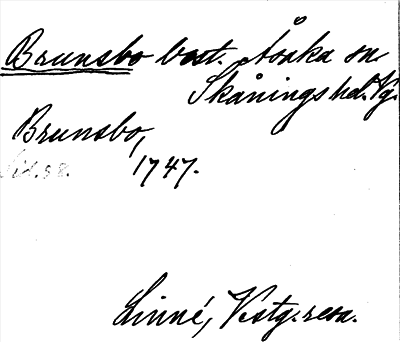 Brunsbo bost. Åsaka sn
Skånings hd. Vg.
Brunsbo,
Sid. 98. 1747.
Linné, Vestg. resa.